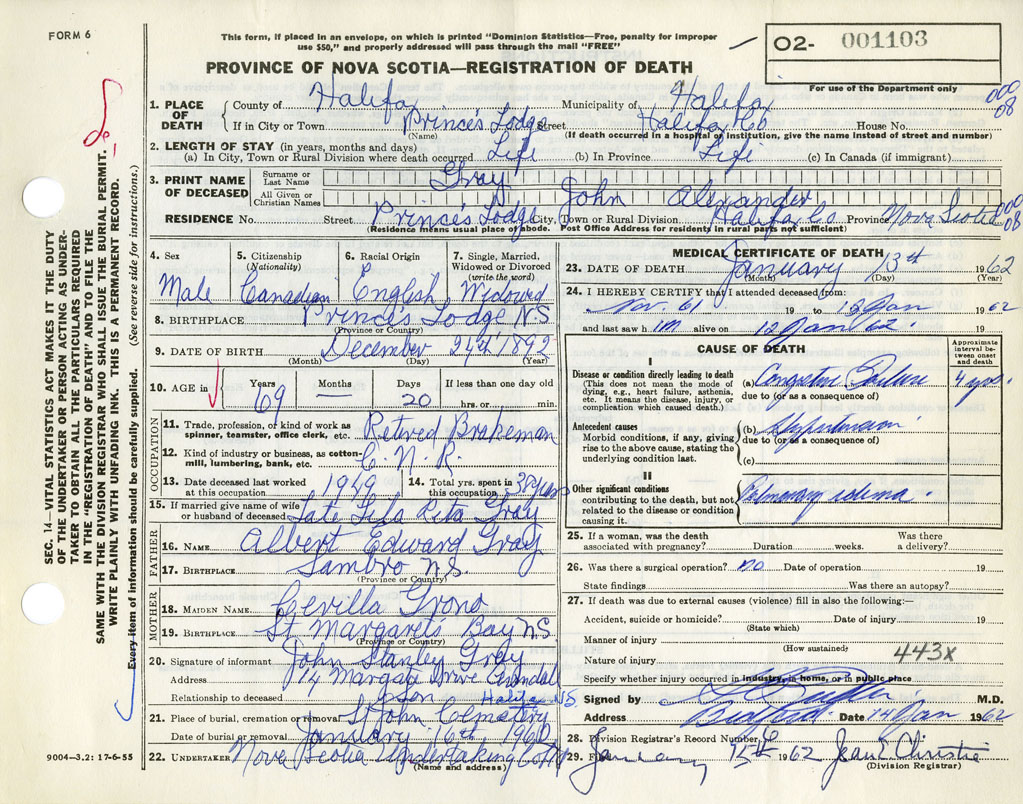 FORM 6
This form, if placed in an envelope, on which is printed "Dominion Statistics—Free, penalty for improper
use $50," and properly addressed will pass through the mail "FREE"
02- 001103
PROVINCE OF NOVA SCOTIA—REGISTRATION OF DEATH
For use of the Department only
000
08
1. PLACE OF DEATH { County of Halifax Municipality of Halifax
If in City or Town Prince's Lodge Street Halifax Co House No.
(Name) (If death occurred in a hospital or institution, give the name instead of street and number)
2. LENGTH OF STAY (in years, months and days)
(a) In City, Town or Rural Division where death occurred Life (b) In Province Life (c) In Canada (if immigrant)
3. PRINT NAME OF DECEASED { Surname or Last Name Gray
All Given or Christian Names John Alexander
RESIDENCE No. Street Prince's Lodge City, Town or Rural Division Halifax Co Province Nova Scotia
000
08
(Residence means usual place of abode. Post Office Address for residents in rural parts not sufficient)
4. Sex 5. Citizenship (Nationality) 6. Racial Origin 7. Single, Married, Widowed or Divorced (write the word)
Male Canadian English Widowed
8. BIRTHPLACE Prince's Lodge N.S.
(Province or Country)
9. DATE OF BIRTH December 24th 1892
(Month) (Day) (Year)
10. AGE in { Years Months Days If less than one day old
69 — 20 hrs. or min.
OCCUPATION
11. Trade, profession, or kind of work as spinner, teamster, office clerk, etc. Retired Brakeman
12. Kind of industry or business, as cotton-mill, lumbering, bank, etc. C.N.R.
13. Date deceased last worked at this occupation 1949 14. Total yrs. spent in this occupation 38 years
15. If married give name of wife or husband of deceased Late Lila Rita Gray
FATHER
16. NAME Albert Edward Gray
17. BIRTHPLACE Sambro N.S.
(Province or Country)
MOTHER
18. MAIDEN NAME Cevilla Grono
19. BIRTHPLACE St Margaret's Bay N.S.
(Province or Country)
20. Signature of informant John Stanley Gray
Address 14 Margaret Drive Armdale
Relationship to deceased Son Halifax NS
21. Place of burial, cremation or removal St John Cemetery
Date of burial or removal January 16th, 1962
22. UNDERTAKER Nova Scotia Undertaking
(Name and address)
MEDICAL CERTIFICATE OF DEATH
23. DATE OF DEATH January 13th 1962
(Month) (Day) (Year)
24. I HEREBY CERTIFY that I attended deceased from:
Nov. 61 19 to 13 Jan 1962
and last saw him alive on 12 Jan 62 19
CAUSE OF DEATH
Approximate interval between onset and death
I
Disease or condition directly leading to death
(This does not mean the mode of dying, e.g., heart failure, asthenia, etc. It means the disease, injury, or complication which caused death.)
(a) Congestive Failure 4 yrs.
due to (or as a consequence of)
Antecedent causes
Morbid conditions, if any, giving rise to the above cause, stating the underlying condition last.
(b) Hypertension
due to (or as a consequence of)
(c)
II
Other significant conditions
contributing to the death, but not related to the disease or condition causing it.
Pulmonary edema
25. If a woman, was the death associated with pregnancy? Duration weeks. Was there a delivery?
26. Was there a surgical operation? no Date of operation 19
State findings Was there an autopsy?
27. If death was due to external causes (violence) fill in also the following:—
Accident, suicide or homicide? Date of injury 19
(State which)
Manner of injury
(How sustained)
Nature of injury 443X
Specify whether injury occurred in industry, in home, or in public place
Signed by M.D.
Address Bedford Date 14 Jan 1962
28. Division Registrar's Record Number
29. Filed January 15th 1962 Jean E Christie
(Division Registrar)
SEC. 14—VITAL STATISTICS ACT MAKES IT THE DUTY
OF THE UNDERTAKER OR PERSON ACTING AS UNDER-
TAKER TO OBTAIN ALL THE PARTICULARS REQUIRED
IN THE "REGISTRATION OF DEATH" AND TO FILE THE
SAME WITH THE DIVISION REGISTRAR WHO SHALL ISSUE THE BURIAL PERMIT.
WRITE PLAINLY WITH UNFADING INK. THIS IS A PERMANENT RECORD.
Every item of information should be carefully supplied. (See reverse side for instructions.)
9004—3.2: 17-6-55